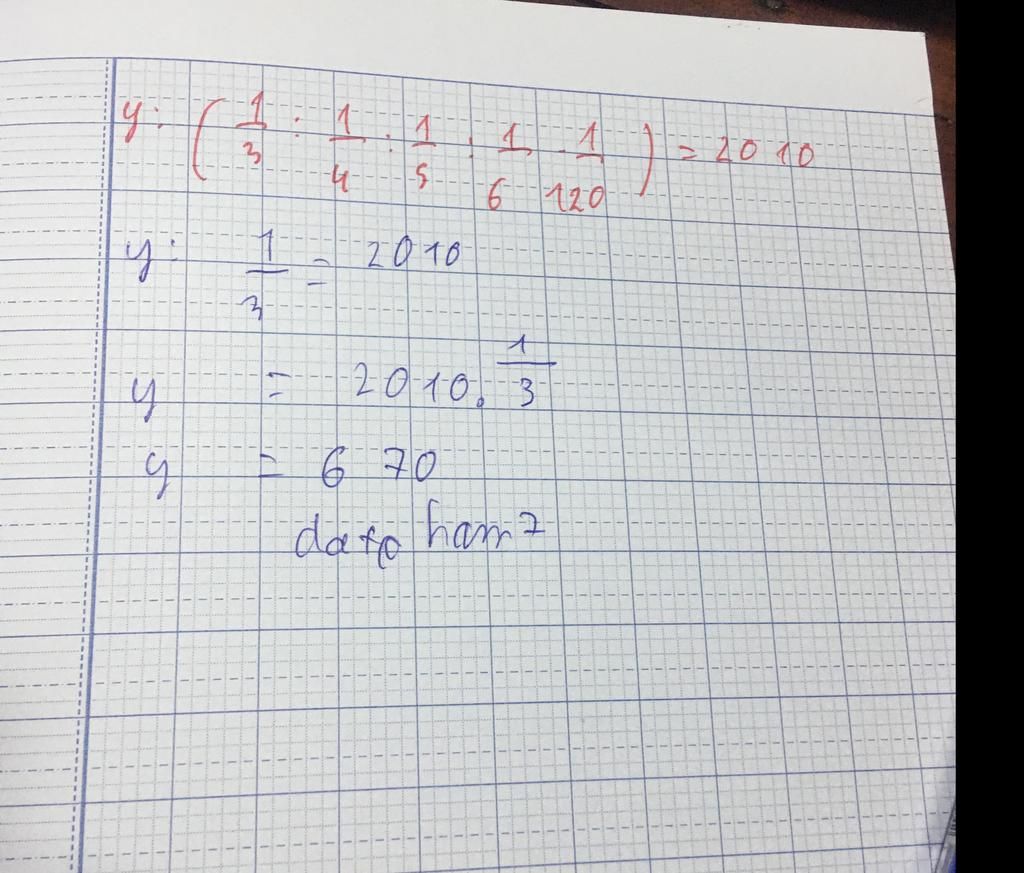 y: ( 1/3 : 1/4 : 1/5 : 1/6 . 1/120 ) = 2010
y: 1/3 = 2010
y = 2010. 1/3
y = 670